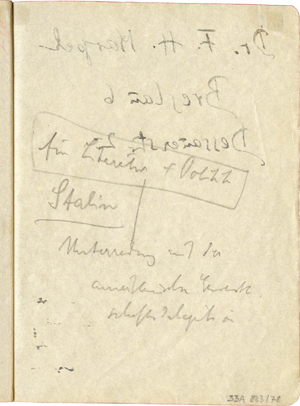 Dr. F. H.
Breslau 6
Dessauerstr. 2
für Literatur + Politik
Stalin
Unterredung mit der
amerikanischen Gewerk
schaftsdelegation
BBA